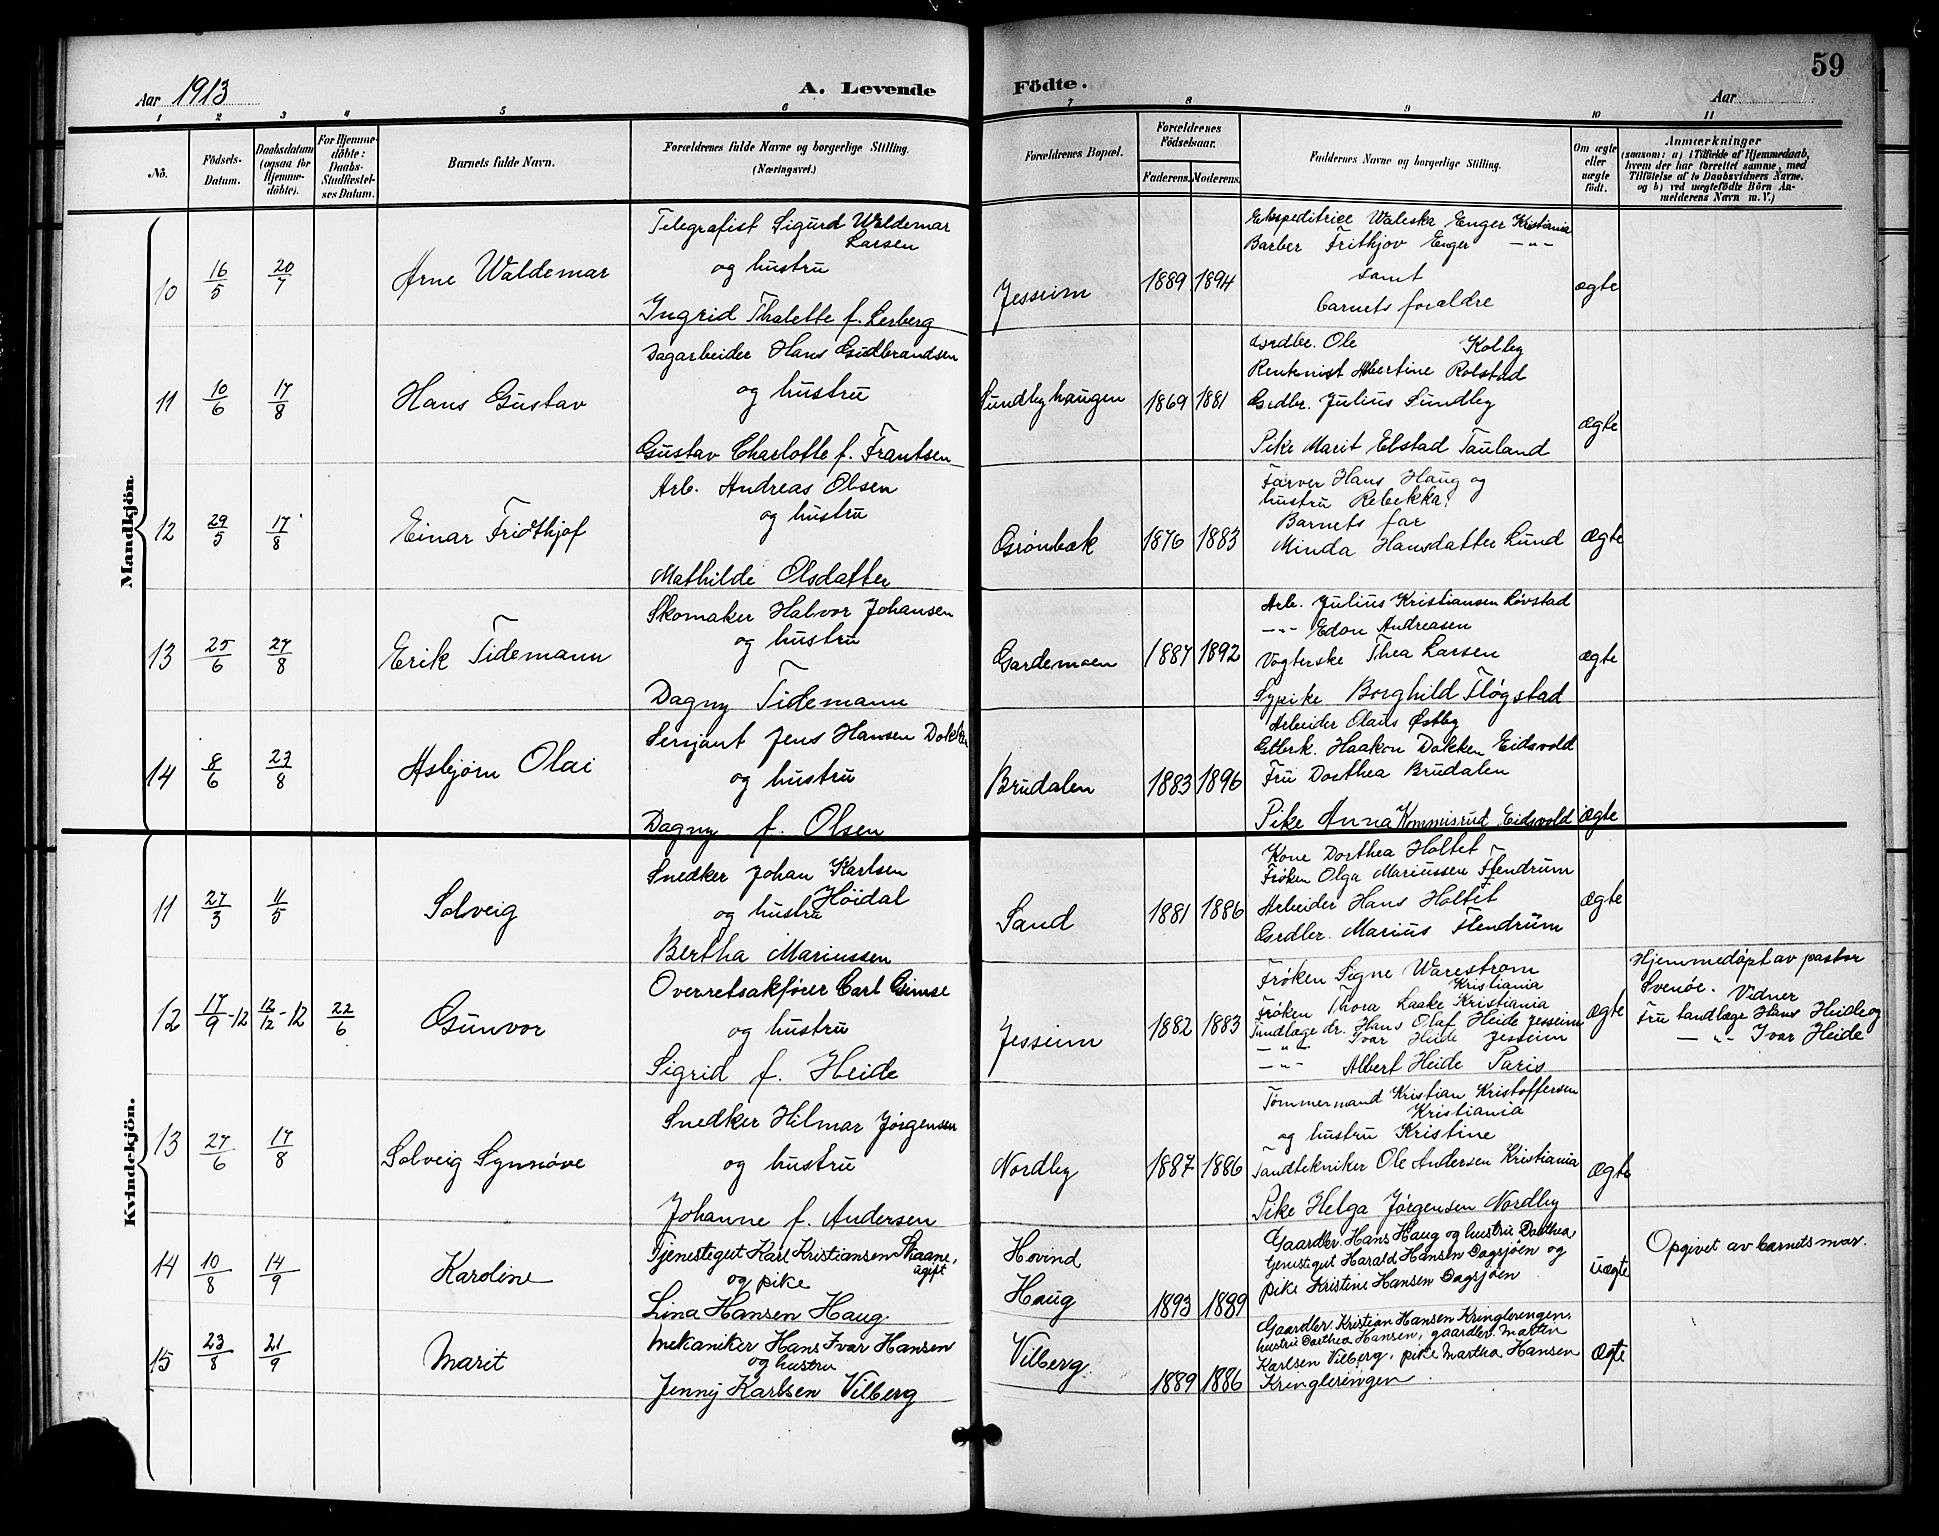 59
Aar 1913
A. Levende Födte.
Aar
1 2 3 4 5 6 7 8 9 10 11
No.
Födsels-
Datum.
Daabsdatum
(ogsaa for
Hjemme-
döbte).
For Hjemme-
döbte:
Daabs-
Stadfæstel-
ses Datum.
Barnets fulde Navn.
Forældrenes fulde Navne og borgerlige Stilling.
(Næringsvei.)
Forældrenes Bopæl.
Forældrenes
Födselsaar.
Faderens. Moderens.
Faddernes Navne og borgerlige Stilling.
Om ægte
eller
uægte
födt.
Anmærkninger
(saasom: a) i Tilfælde af Hjemmedaab,
hvem der har forrettet samme, med
Tilföielse af to Daabsvidners Navne.
og b) ved uægtefödte Börn An-
melderens Navn m.V.)
Mandkjön.
10 16/5 20/7 Arne Waldemar
Telegrafist Sigurd Waldemar
Larsen
og hustru
Ingrid Thalette f. Lerberg
Jesseim 1889 1894
Ekspeditrice Waleska Enger Kristiania
Barber Frithjov Enger -"-
samt
barnets foræl­dre
ægte
11 10/6 17/8 Hans Gustav
Dagarbeider Hans Gudbrandsen
og hustru
Gustav Charlotte f. Frantsen
Sundbyhaugen 1869 1881
Grdbr. Ole Kolby
Rentenist Albertine Rolstad
Grdbr. Julius Sundby
Pike Marit Elstad Tauland
ægte
12 29/5 17/8 Einar Fridthjof
Arb. Andreas Olsen
og hustru
Mathilde Olsdatter
Grønbæk 1876 1883
Farver Hans Haug og
hustru Rebekka.
Barnets far
Minda Hansdatter Lund
ægte
13 25/6 27/8 Erik Tidemann
Skomaker Halvor Johansen
og hustru
Dagny Tidemann
Gardemoen 1887 1892
Arb. Julius Kristiansen Løvstad
-"- Edon Andreasen
Vogterske Thea Larsen
Sypike Borghild Fløgstad
ægte
14 8/6 23/8 Asbjørn Olai
Sersjant Jens Hansen Dokken
og hustru
Dagny f. Olsen
Brudalen 1883 1896
Arbeider Olaus Østby
Gtbrk. Haakon Dokken Eidsvold
Fru Dorthea Brudalen
Pike Anna Kommisrud Eidsvold
ægte
Kvindekjön.
11 27/3 11/5 Solveig
Snedker Johan Karlsen
Höidal
og hustru
Bertha Mariussen
Sand 1881 1886
Kone Dorthea Holtet
Frøken Olga Mariussen Flendrum
Arbeider Hans Holtet
Grdbr. Marius Flendrum
ægte
12 17/9-12 12/12-12 22/6 Gunvor
Overretsakfører Carl Gimse
og hustru
Sigrid f. Heide
Jesseim 1882 1883
Frøken Signe Warestrøm
Kristiania
Frøken Thora Laake Kristiania
Tandlæge dr. Hans Olaf Heide Jesseim
-"- Ivar Heide Jesseim
-"- Albert Heide Paris
ægte
Hjemmedøpt av pastor
Svenøe. Vidner
Fru tandlæge Hans Heide og
-"- Ivar Heide
13 27/6 17/8 Solveig Synnøve
Snedker Hilmar Jørgensen
og hustru
Johanne f. Andersen
Nordby 1887 1886
Tømmermand Kristian Kristoffersen
Kristiania
og hustru Kristine
Tandtekniker Ole Andersen Kristiania
Pike Helga Jørgensen Nordby
ægte
14 10/8 14/9 Karoline
Tjenestegut Karl Kristiansen Skaane,
ugift
og pike
Lina Hansen Haug.
Hovind
Haug 1893 1889
Gaardbr. Hans Haug og hustru Dorthea,
Tjenestegut Harald Hansen Dagsjøen og
pike Kristine Hansen Dagsjøen
uægte
Opgivet av barnets mor.
15 23/8 21/9 Marit
Mekaniker Hans Ivar Hansen
og hustru
Jenny Karlsen Vilberg
Vilberg. 1889 1886
Gaardbr. Kristian Hansen Kringlerengen,
hustru Dorthea Hansen, gaardbr. Martin
Karlsen Vilberg, pike Martha Hansen
Kringlerengen.
ægte